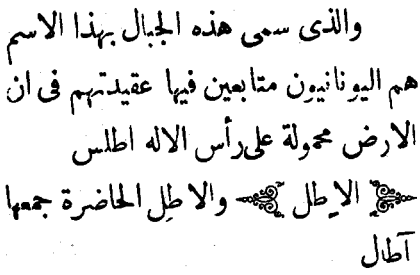 والذى سمى هذه الجبال بهذا الاسم
هم اليونانيون متابعين فيها عقيدتهم فى ان
الارض محمولة على رأس الاله اطلس
الإطل والاطِل الخاضرة جمعها
آطال